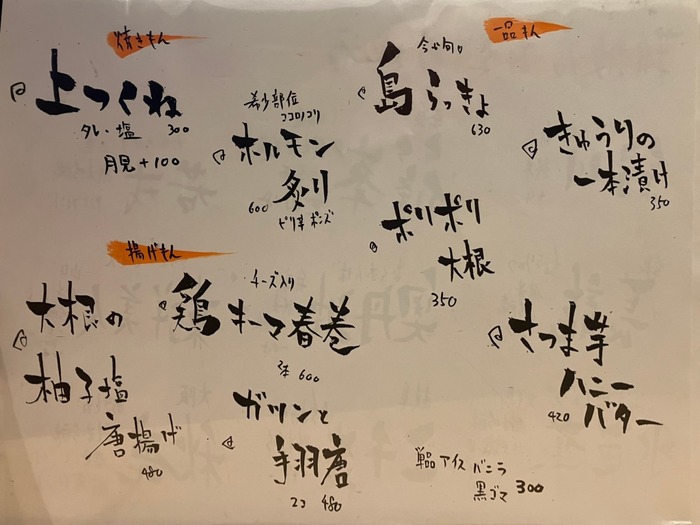 焼きもん
上つくね
タレ・塩 300
月見+100
希少部位
ココロノコリ
ホルモン
炙り
600
ピリ辛ポンズ
一品もん
今が旬!!
島らっきょ
630
きゅうりの
一本漬け
350
ポリポリ
大根
350
さつま芋
ハニー
バター
420
揚げもん
大根の
柚子塩
唐揚げ
480
チーズ入り
鶏キーマ春巻
3本 600
ガツンと
手羽唐
2コ 480
単品アイス バニラ
黒ゴマ 300